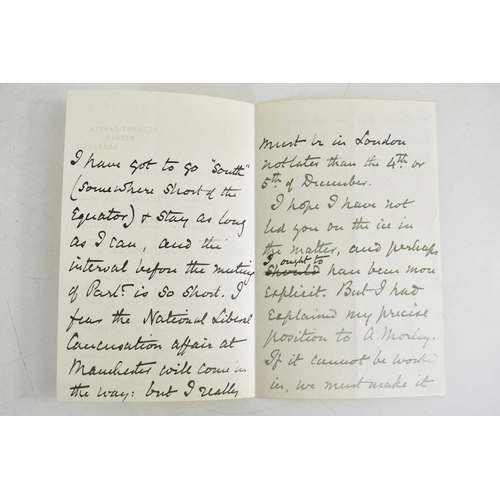 I have got to go "South"
(somewhere short of the
Equator) & stay as long
as I can, and the
interval before the meeting
of Parlt. is so short. I
fear the National Liberal
Concusation affair at
Manchester will come in
the way: but I really
must be in London
not later than the 4th or
5th of December.
I hope I have not
led you on the ice in
the matter, and perhaps
I ought to
Should have been more
explicit. But I had
explained my precise
position to A. Morley.
If it cannot be worked
in, we must make it